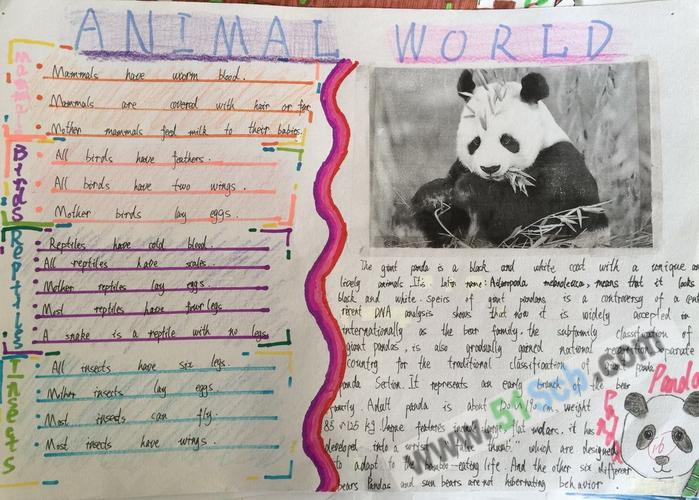 ANIMAL WORLD
Mammals
Mammals have worm blood.
Mammals are covered with hair or fur
Mother mammals feed milk to their babies.
Birds
All birds have feathers.
All birds have two wings.
Mother birds lay eggs.
Reptiles
Reptiles have cold blood.
All reptiles have scales.
Mother reptiles lay eggs.
Most reptiles have four legs
A snake is a reptile with no legs
Insects
All insects have six legs.
Mother insects lay eggs
Most insects can fly.
Most insects have wings.
The giant panda is a black and white coat with a
lively animals. It's latin name: means that it looks
black and white. of giant pandas, is a controversy of a
recent DNA analysis shows that now it is widely accepted in
internationally as the bear family, the subfamily classification of
giant pandas, is also gradually gained national
country for the traditional classification panda
panda Section. It represents an early branch of the bear
family. Adult panda is about weight
85 125 kg. Unique features
developed into a thumb" which are designed
to adapt to the bamboo-eating life. And the other six different
bears Pandas and sun bears are not hibernating behavior.
Panda
www.51sch.com